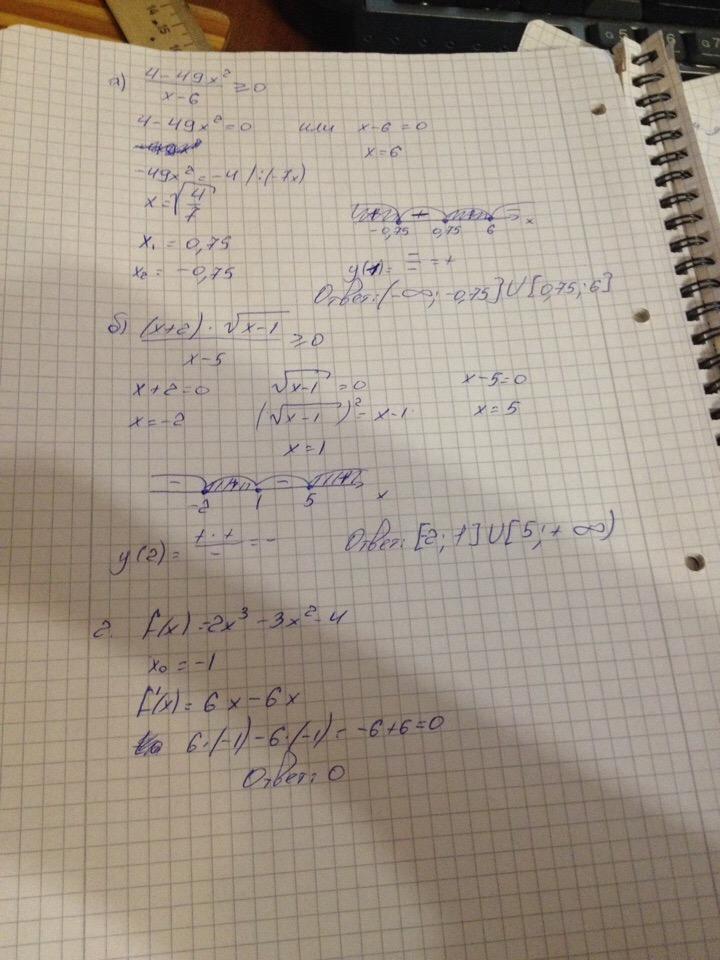 а) (4-49x²)/(x-6) ≥0
4-49x²=0 или x-6=0
x=6
-49x²=-4 /:(-7x)
x=√(4/7)
x₁ = 0,75
x₂ = -0,75
+ - x
-0,75 0,75 6
y(1)= = +
Ответ: (-∞; -0,75]∪[0,75; 6]
б) ((x+2)·√(x-1))/(x-5) ≥0
x+2=0 √(x-1) =0 x-5=0
x=-2 (√(x-1))²= x-1 x=5
x=1
- + - + x
-2 1 5
y(2)= (+·+)/- = -
Ответ: [-2; 1]∪[5; +∞)
2. f(x)=2x³-3x²-4
x₀ =-1
f'(x)= 6x-6x
6·(-1)-6·(-1)= -6+6=0
Ответ: 0